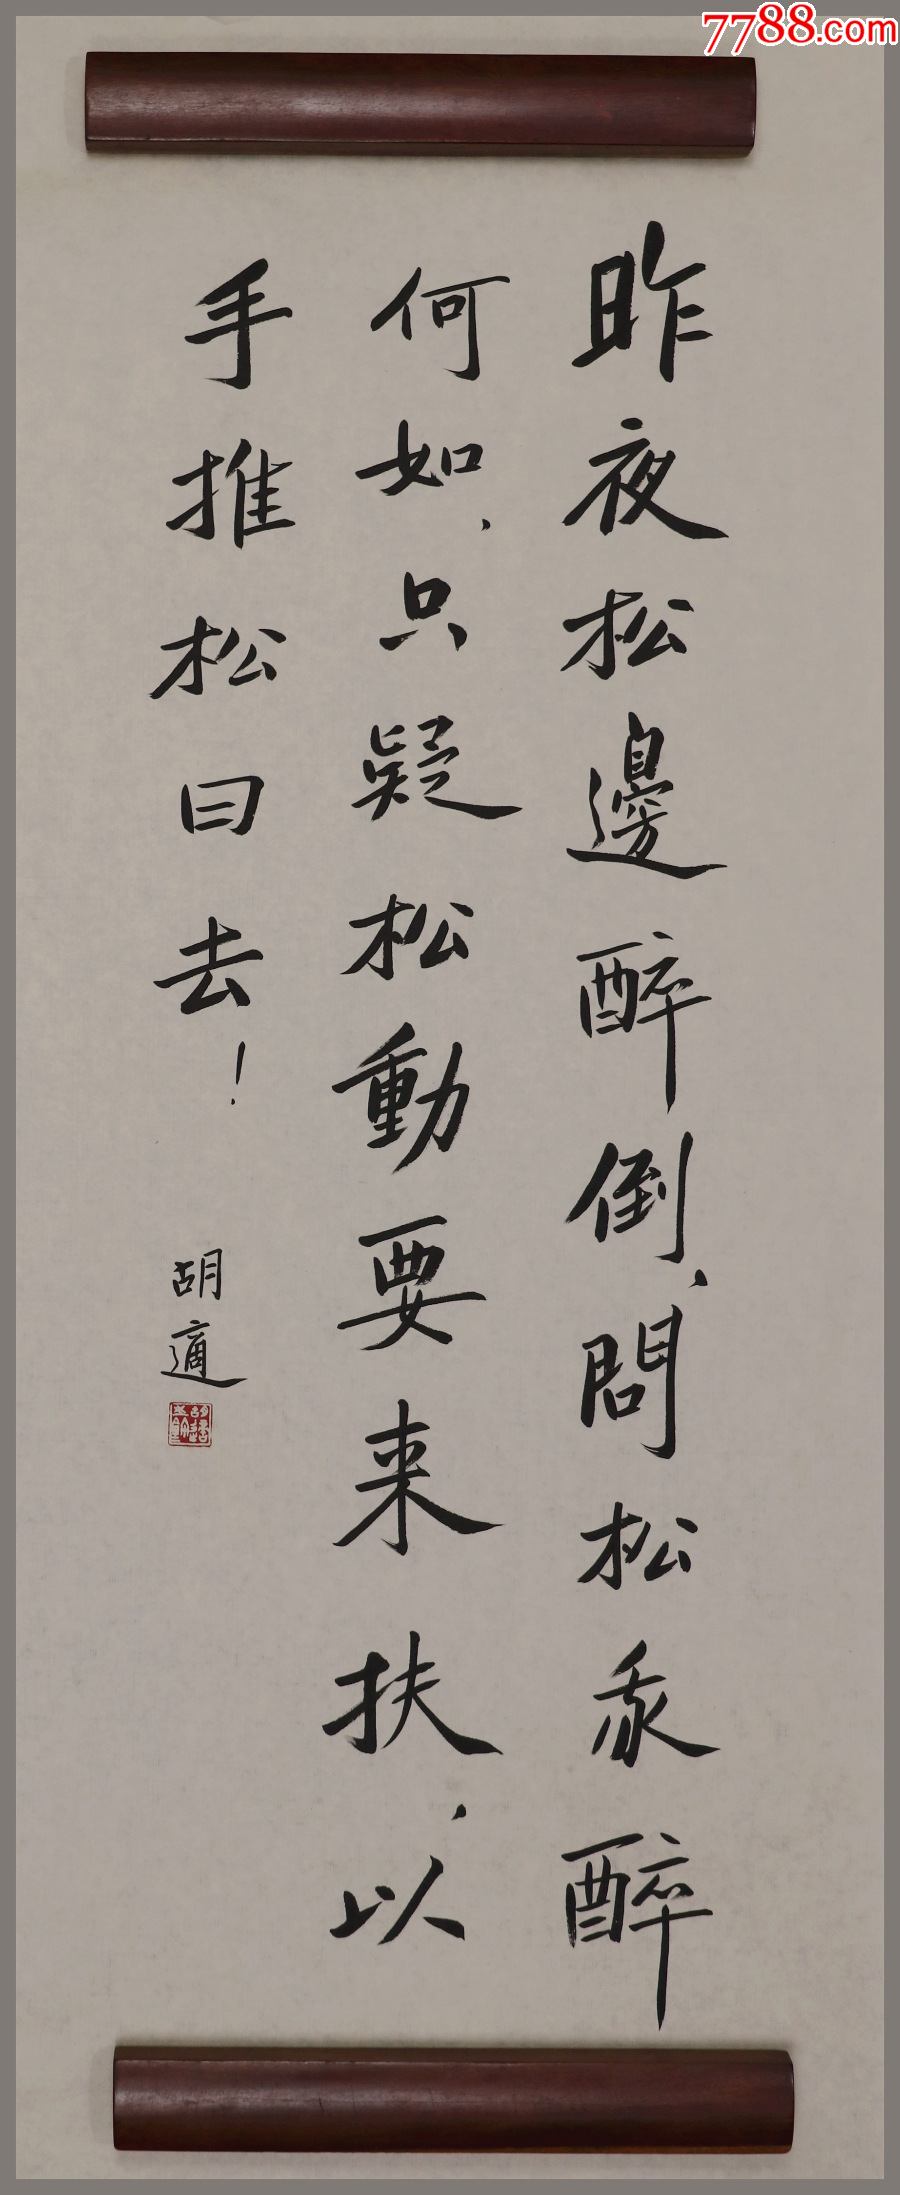 7788.com
昨夜松邊醉倒、問松我醉
何如、只疑松動要来扶、以
手推松曰去！
胡適